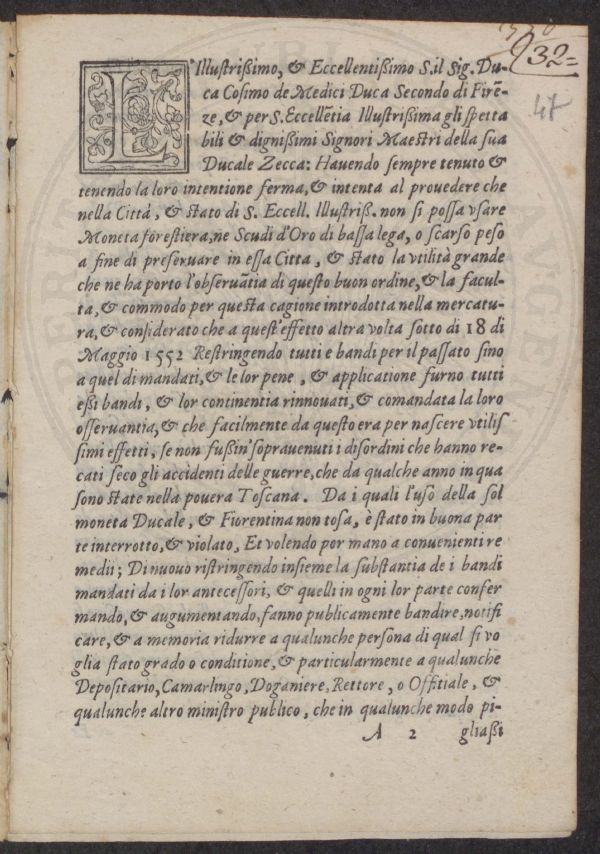 932=
47
L'Illustrißimo, & Eccellentißimo S. il Sig. Du-
ca Cosimo de Medici Duca Secondo di Firē-
ze, & per S. Eccellētia Illustrißima gli spetta
bili & dignißimi Signori Maestri della sua
Ducale Zecca: Hauendo sempre tenuto &
tenendo la loro intentione ferma, & intenta al prouedere che
nella Città, & stato di S. Eccell. Illustriß. non si possa vsare
Moneta forestiera, ne Scudi d'Oro di bassa lega, o scarso peso
a fine di preseruare in essa Citta, & stato la vtilità grande
che ne ha porto l'obseruātia di questo buon ordine, & la facul-
ta, & commodo per questa cagione introdotta nella mercatu-
ra, & considerato che a quest'effetto altra volta sotto di 18 di
Maggio 1552 Restringendo tutti e bandi per il passato sino
a quel di mandati, & le lor pene, & applicatione furno tutti
eßi bandi, & lor continentia rinnouati, & comandata la loro
osseruantia, & che facilmente da questo era per nascere vtilis
simi effetti, se non fußin' soprauenuti i disordini che hanno re-
cati seco gli accidenti delle guerre, che da qualche anno in qua
sono state nella pouera Toscana. Da i quali l'uso della sol
moneta Ducale, & Fiorentina non tosa, è stato in buona par
te interrotto, & violato, Et volendo por mano a conuenienti re
medii; Di nuouo ristringendo insieme la substantia de i bandi
mandati da i lor antecessori, & quelli in ogni lor parte confer
mando, & augumentando, fanno publicamente bandire, notifi
care, & a memoria ridurre a qualunche persona di qual si vo
glia stato grado o conditione, & particularmente a qualunche
Depositario, Camarlingo, Doganiere, Rettore, o Offitiale, &
qualunche altro ministro publico, che in qualunche modo pi-
A 2 gliaßi